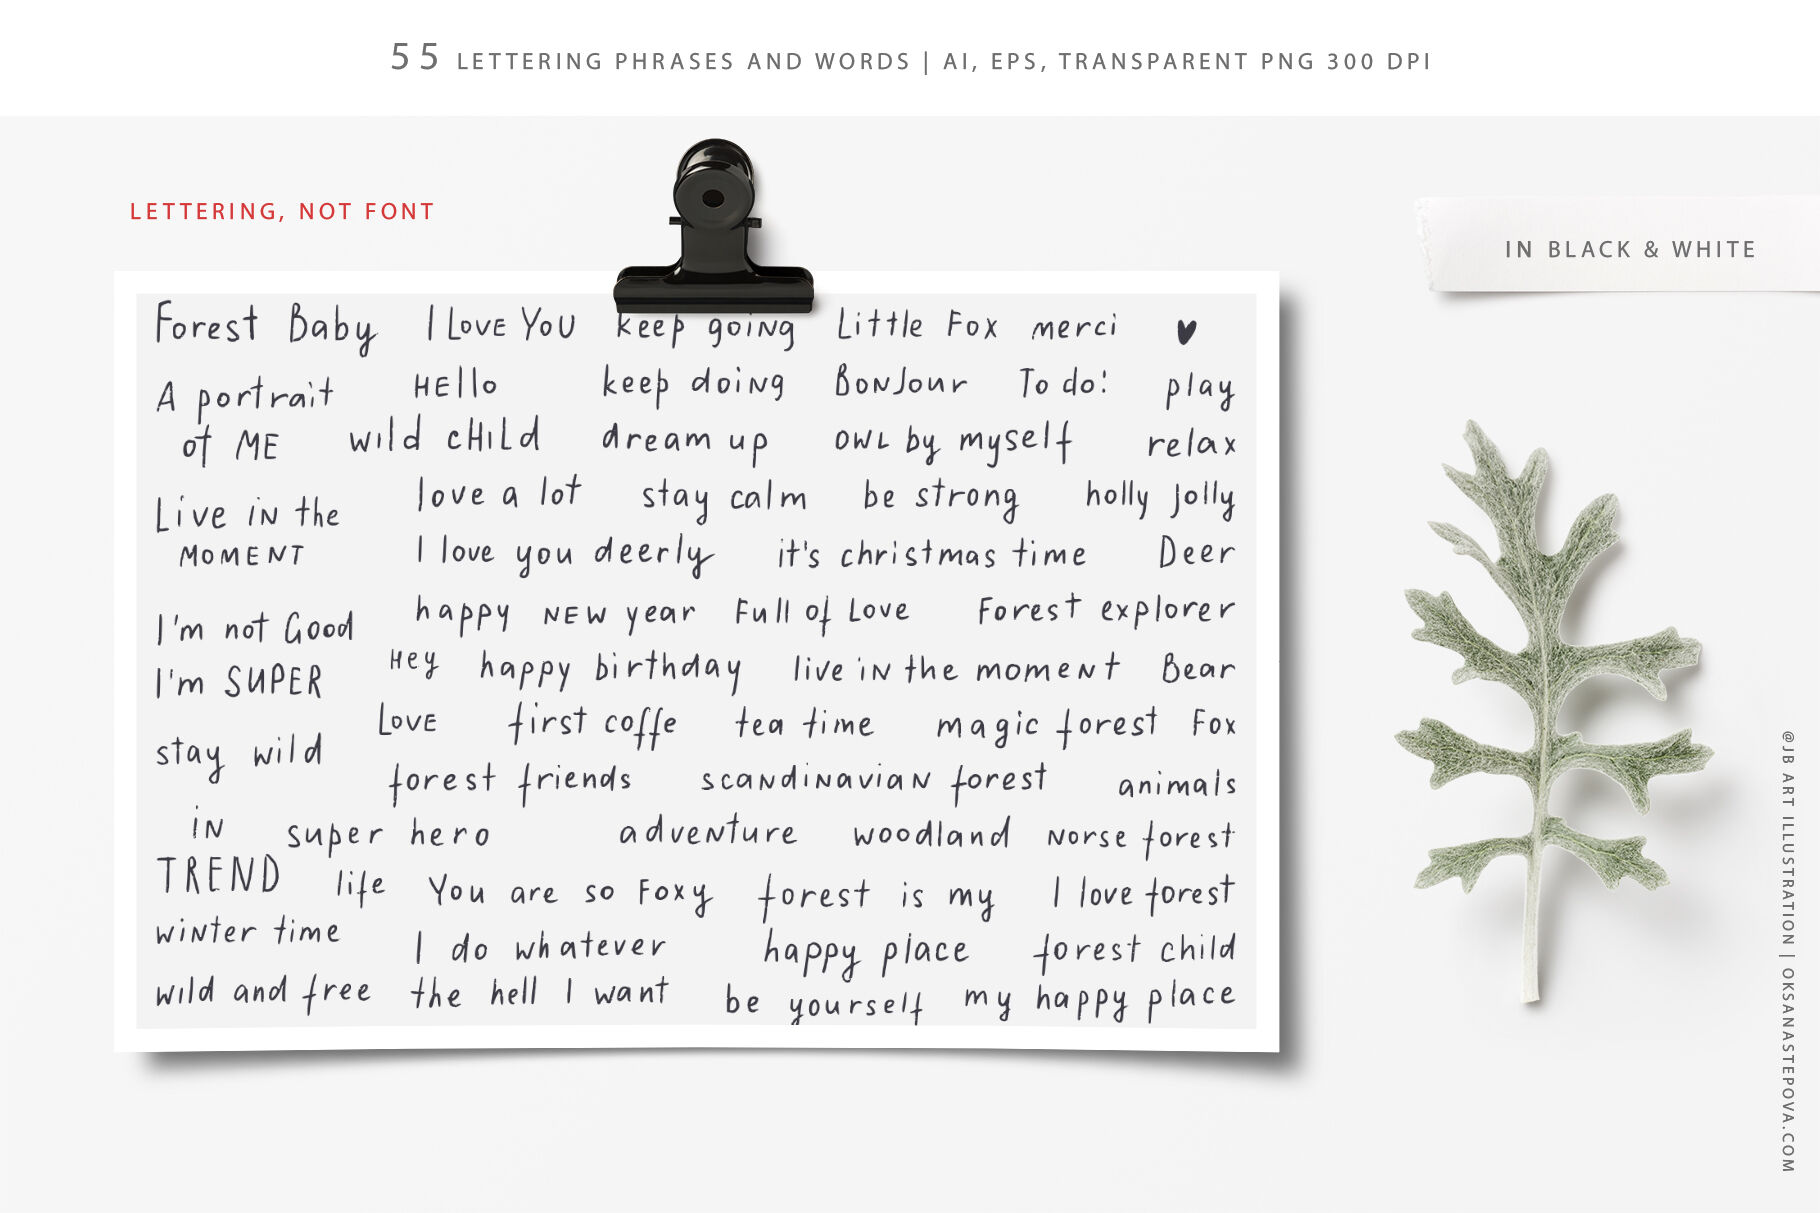 55 LETTERING PHRASES AND WORDS | AI, EPS, TRANSPARENT PNG 300 DPI
LETTERING, NOT FONT
IN BLACK & WHITE
Forest Baby
I LOVE YOU
keep going
Little Fox
merci
A portrait
of ME
HEllo
keep doing
BONJour
To do:
play
wild cHILd
dream up
OWL by myself
relax
Live in the
MOMENT
love a lot
stay calm
be strong
holly Jolly
I love you deerly
it's christmas time
Deer
I'm not Good
I'm SUPER
happy NEW year
Full of Love
Forest explorer
Hey
happy birthday
live in the moment
Bear
LOVE
first coffe
tea time
magic forest
Fox
stay wild
forest friends
scandinavian forest
animals
in
TREND
super hero
adventure
woodland
Norse forest
life
You are so Foxy
forest is my
happy place
I love forest
winter time
I do whatever
the hell I want
forest child
wild and free
be yourself
my happy place
@JB ART ILLUSTRATION | OKSANASTEPOVA.COM